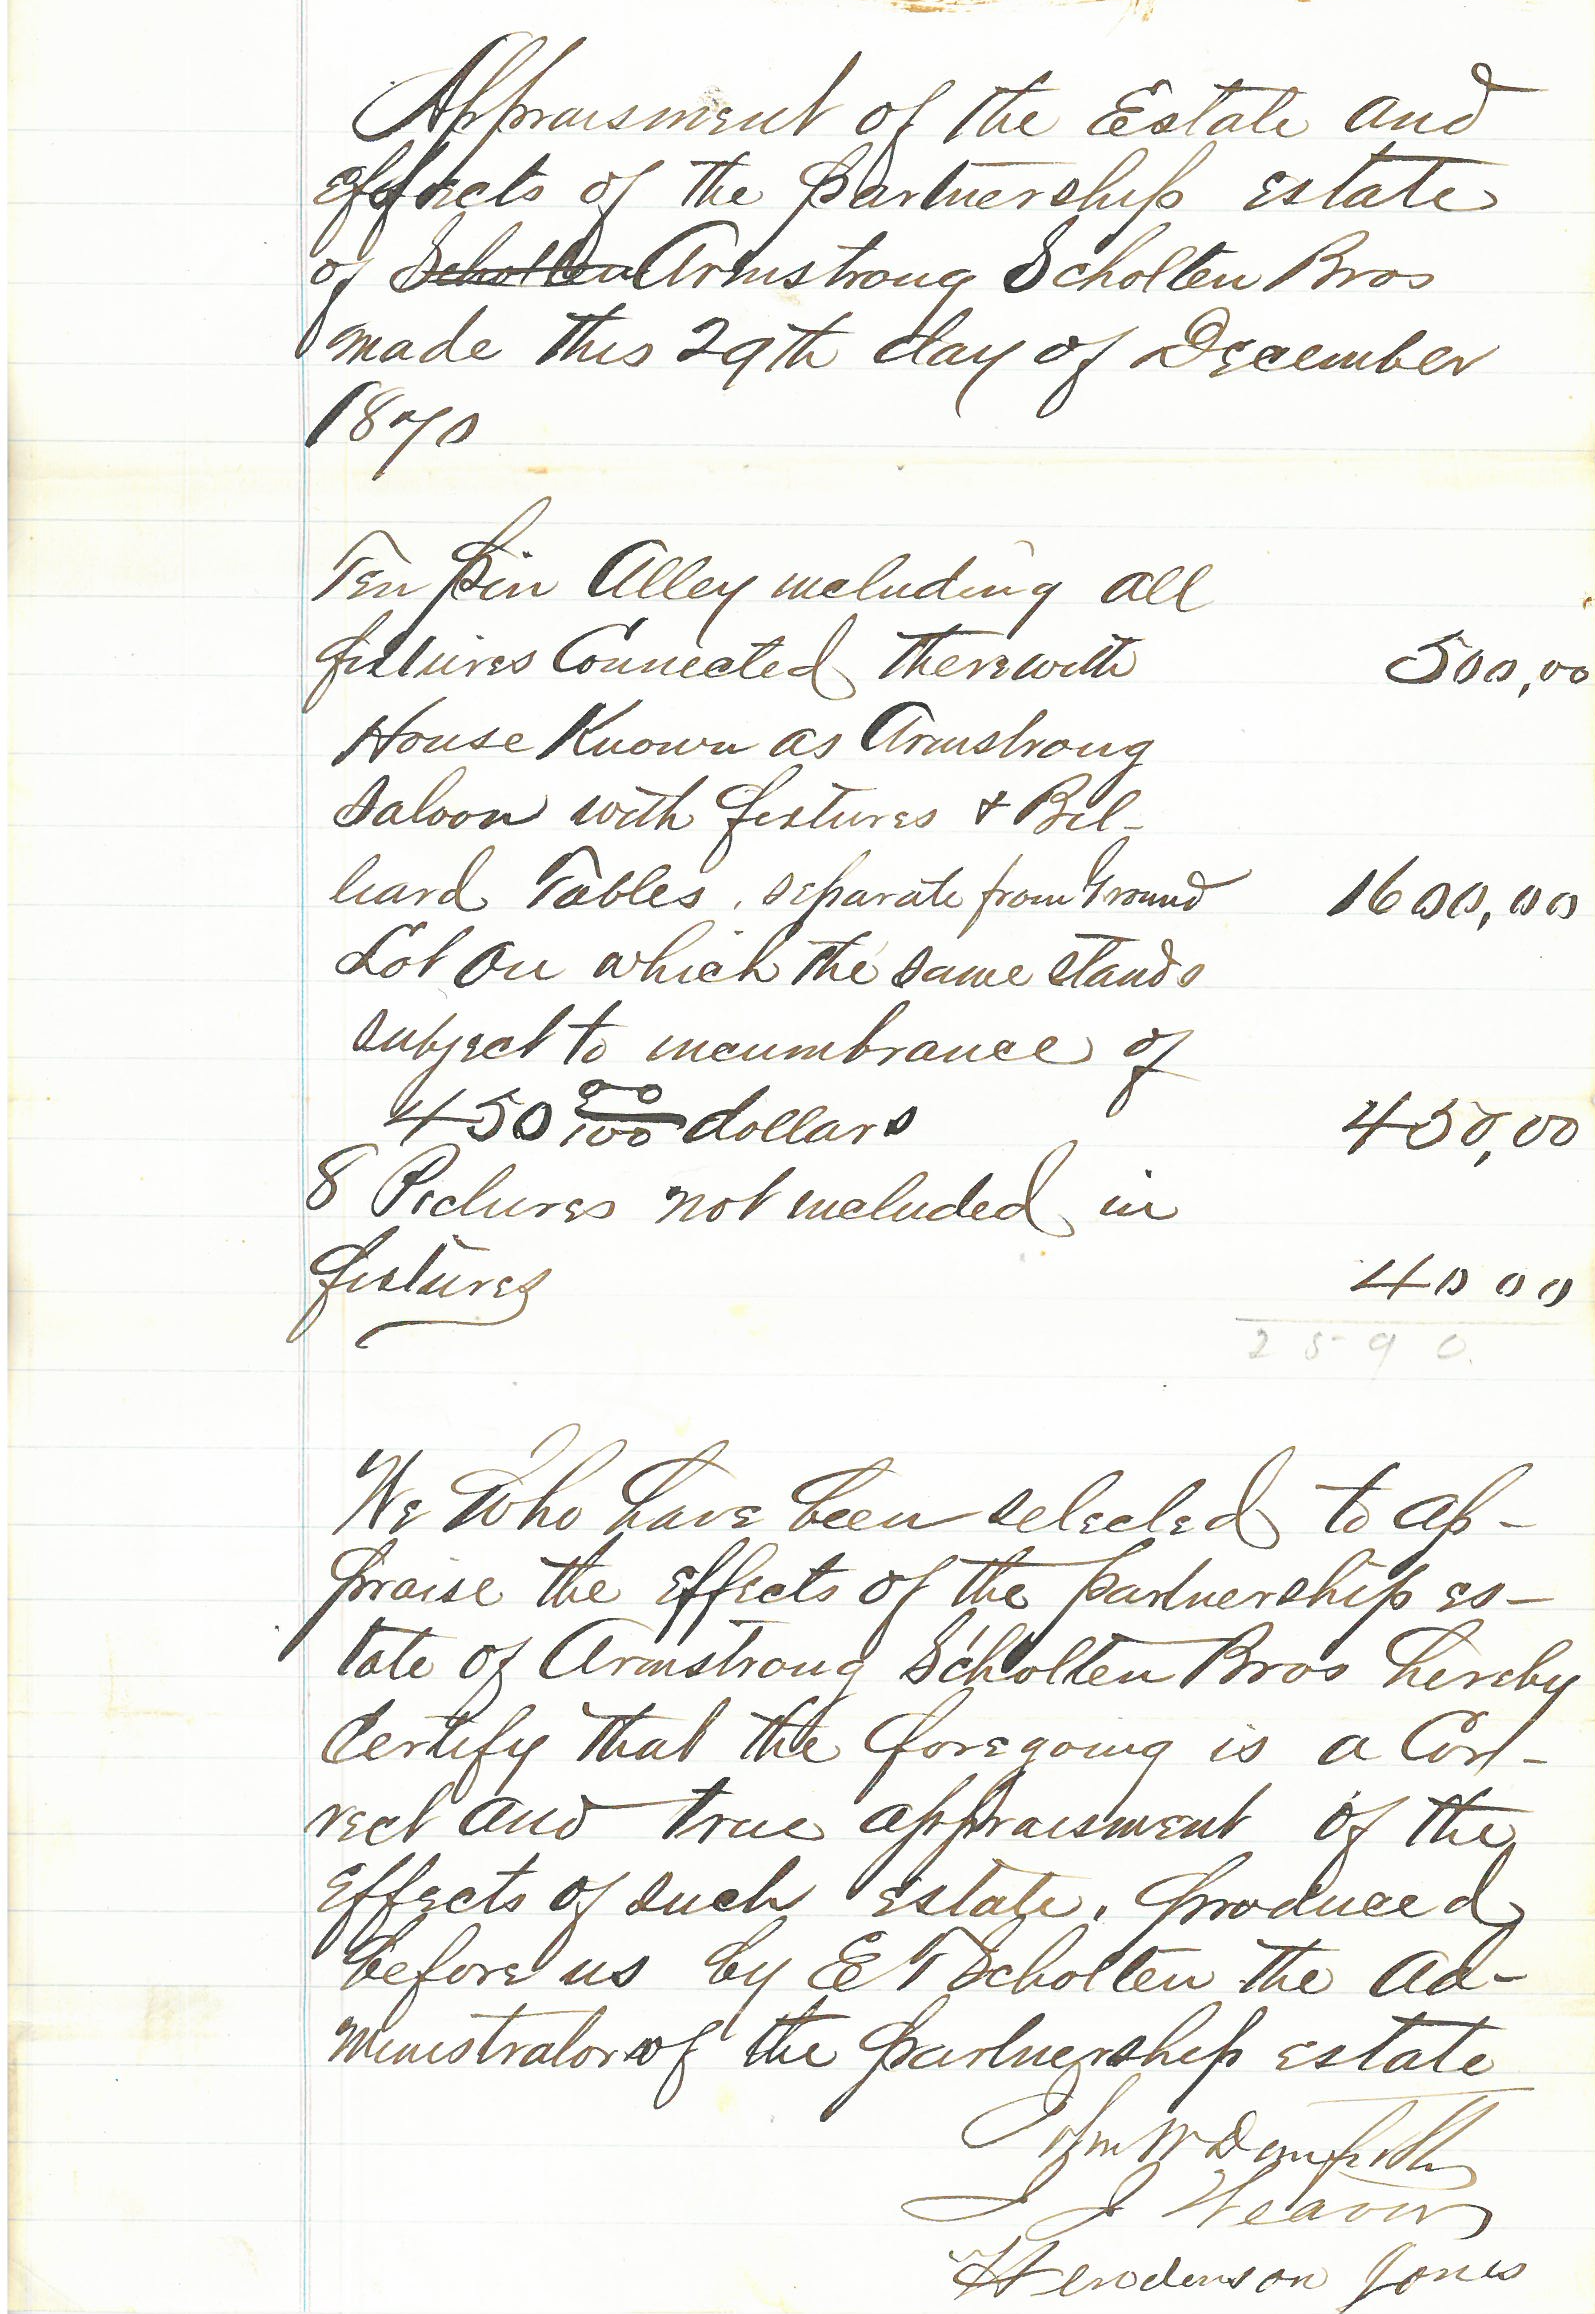 Appraisment of the Estate and
effects of the partnership estate
of Scholten Armstrong Scholten Bros
made this 29th day of December
1870
Ten pin Alley including all
fixtures Connected therewith 500,00
House Known as Armstrong
Saloon with fixtures & Bil-
liard Tables, separate from Ground 1600,00
Lot on which the same stands
subject to incumbrance of
450 00/100 dollars 450,00
8 Pictures not included in
fixtures 40 00
2590
We who have been selected to ap-
praise the effects of the partnership es-
tate of Armstrong Scholten Bros hereby
Certify that the foregoing is a Cor-
rect and true appraisment of the
Effects of such estate, produced
before us by E T Scholten the ad-
ministrator of the partnership estate
John W
J J Weaver
Henderson Jones